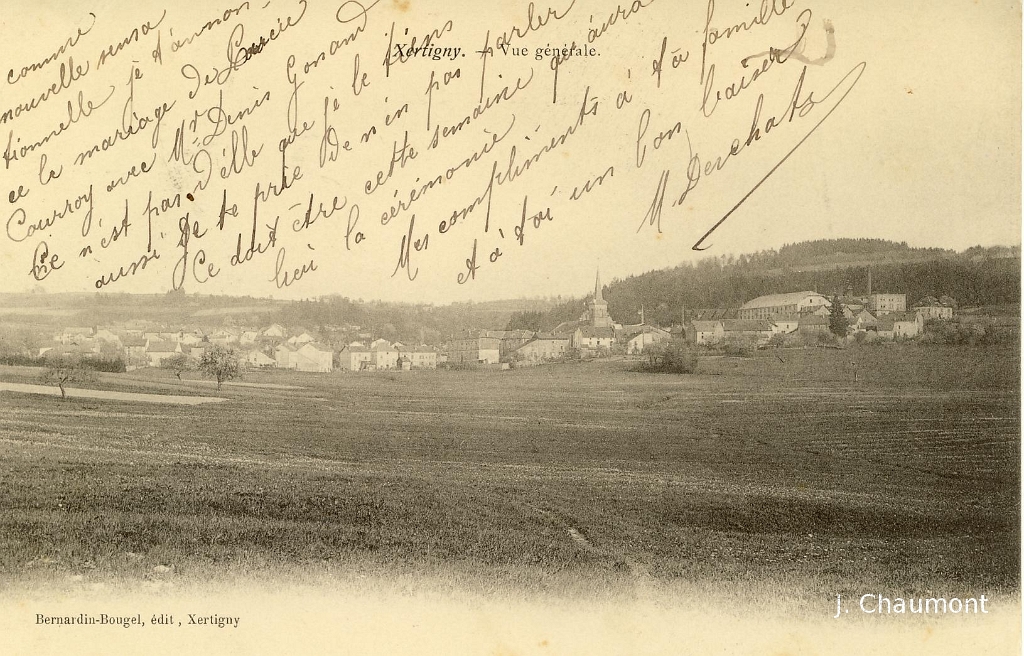 Xertigny. — Vue générale.
comme
nouvelle sensa
tionnelle je t'annon
ce le mariage de Lucie
Courroy avec Mr Denis Gorand
Ce n'est pas d'elle que je le tiens
aussi je te prie de n'en pas parler
Ce doit être cette semaine qu'aura
lieu la cérémonie
Mes compliments à ta famille
et à toi un bon baiser
M. Deschats
Bernardin-Bougel, édit, Xertigny
J. Chaumont